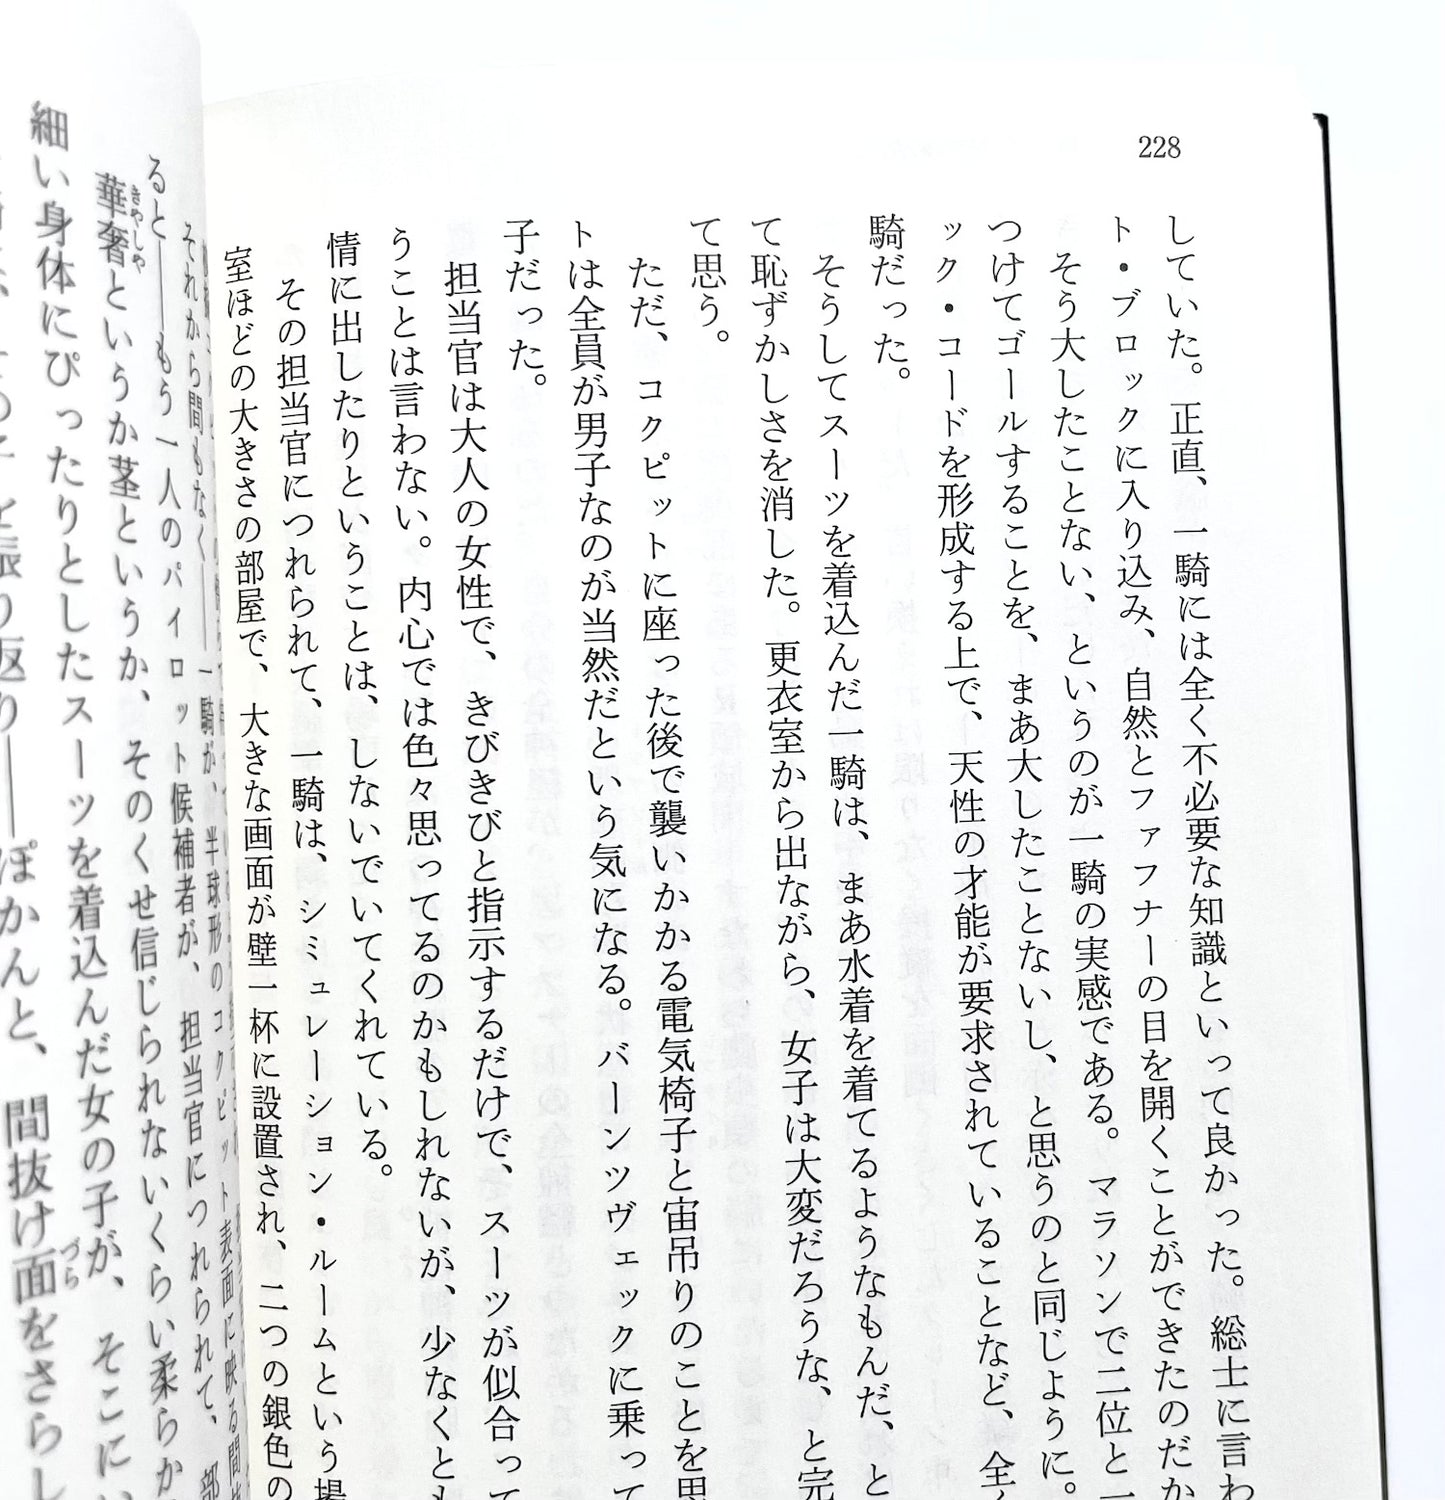 228
していた。正直、一騎には全く不必要な知識といって良かった。総士に言わ
ト・ブロックに入り込み、自然とファフナーの目を開くことができたのだか
そう大したことない、というのが一騎の実感である。マラソンで二位と一
つけてゴールすることを、まあ大したことないし、と思うのと同じように。
ック・コードを形成する上で、天性の才能が要求されていることなど、全く
騎だった。
そうしてスーツを着込んだ一騎は、まあ水着を着てるようなもんだ、と
て恥ずかしさを消した。更衣室から出ながら、女子は大変だろうな、と完
て思う。
ただ、コクピットに座った後で襲いかかる電気椅子と宙吊りのことを思
トは全員が男子なのが当然だという気になる。バーンツヴェックに乗って
子だった。
担当官は大人の女性で、きびきびと指示するだけで、スーツが似合って
うことは言わない。内心では色々思ってるのかもしれないが、少なくとも
情に出したりということは、しないでいてくれている。
その担当官につれられて、一騎は、シミュレーション・ルームという場
室ほどの大きさの部屋で、大きな画面が壁一杯に設置され、二つの銀色の
それから間もなく――一騎が、半球形のコクピット表面に映る間
ると――もう一人のパイロット候補者が、担当官につれられて、部
華奢というか茎というか、そのくせ信じられないくらい柔らか
きやしや
細い身体にぴったりとしたスーツを着込んだ女の子が、そこにい
振り返り――ぽかんと、間抜け面をさらし
づら